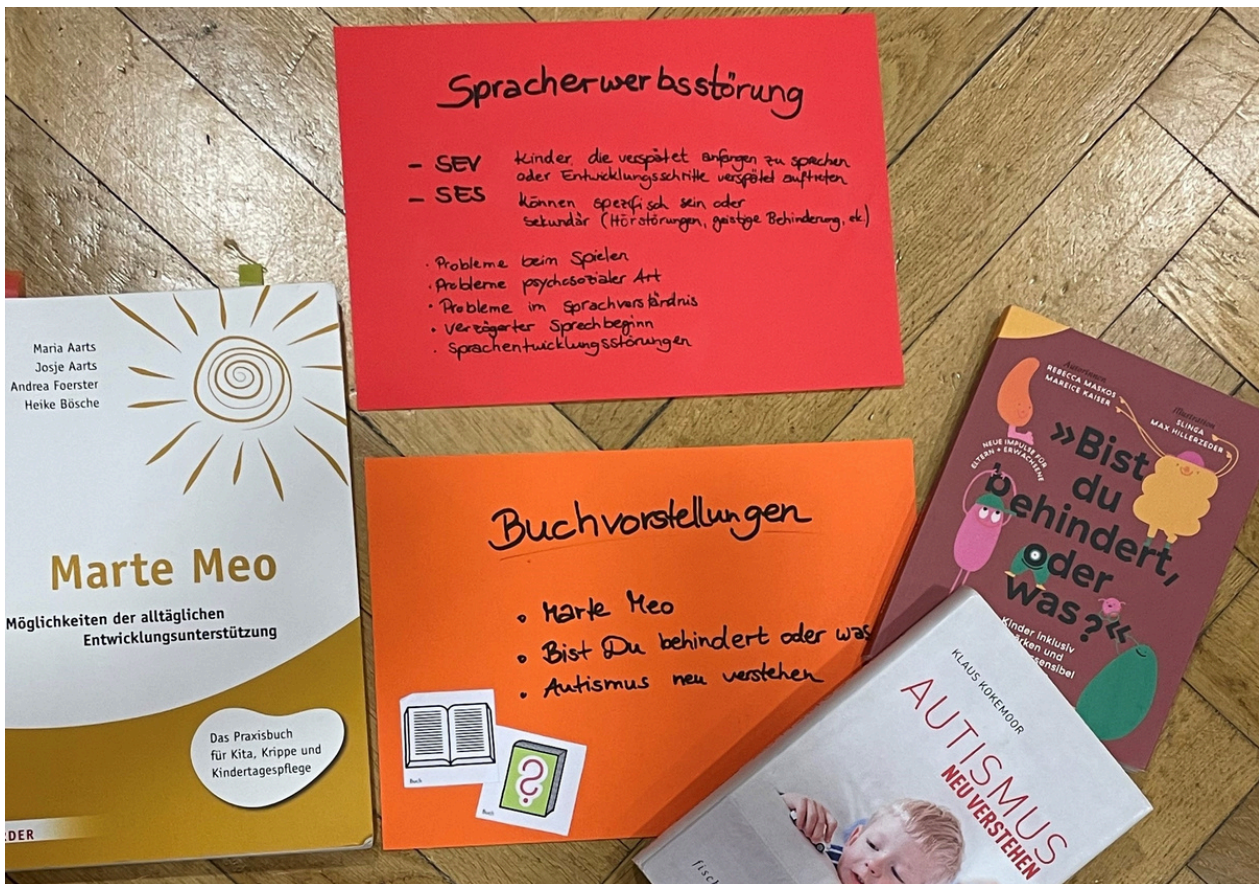 Spracherwerbsstörung
- SEV Kinder, die verspätet anfangen zu sprechen
oder Entwicklungsschritte verspätet auftreten
- SES Können spezifisch sein oder
sekundär (Hörstörungen, geistige Behinderung, etc.)
· Probleme beim Spielen
· Probleme psychosozialer Art
· Probleme im Sprachverständnis
· Verzögerter Sprechbeginn
· Sprachentwicklungsstörungen
Maria Aarts
Josje Aarts
Andrea Foerster
Heike Bösche
Marte Meo
Möglichkeiten der alltäglichen
Entwicklungsunterstützung
Das Praxisbuch
für Kita, Krippe und
Kindertagespflege
RDER
Buchvorstellungen
• Marte Meo
• Bist Du behindert oder was
• Autismus neu verstehen
Buch
Buch
Autorinnen
REBECCA MASKOS
MAREICE KAISER
Illustration
SLINGA
MAX HILLERZEDER
NEUE IMPULSE FÜR
ELTERN + ERWACHSENE
»Bist
du
behindert,
oder
was?«
Kinder inklusiv
ärken und
sensibel
KLAUS KOKEMOOR
AUTISMUS
NEU VERSTEHEN
fisch